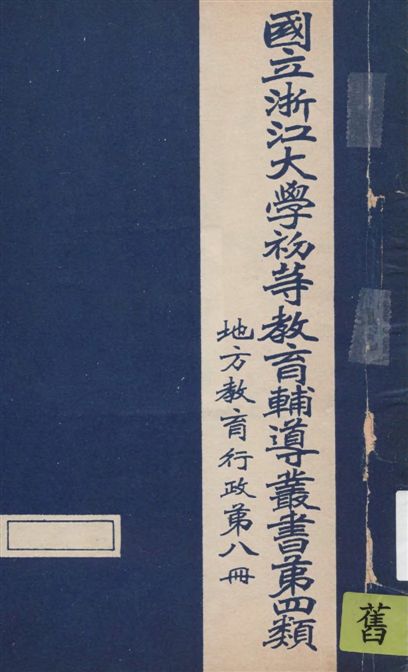 國立浙江大學初等教育輔導叢書第四類
地方教育行政第八冊
舊